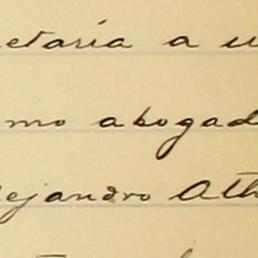 etaria a u
mo abogad
lejandro Ath